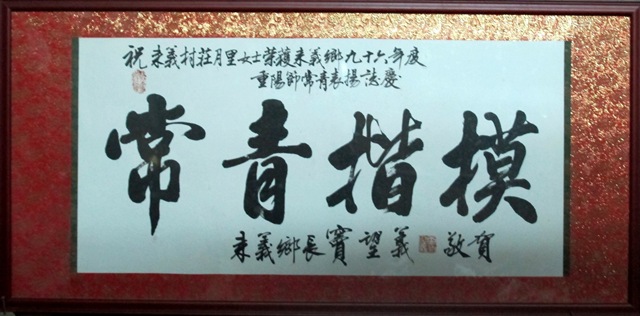 祝 來義村莊月里女士榮獲來義鄉九十六年度
重陽節常青表揚誌慶
常青楷模
來義鄉長竇望義 敬賀